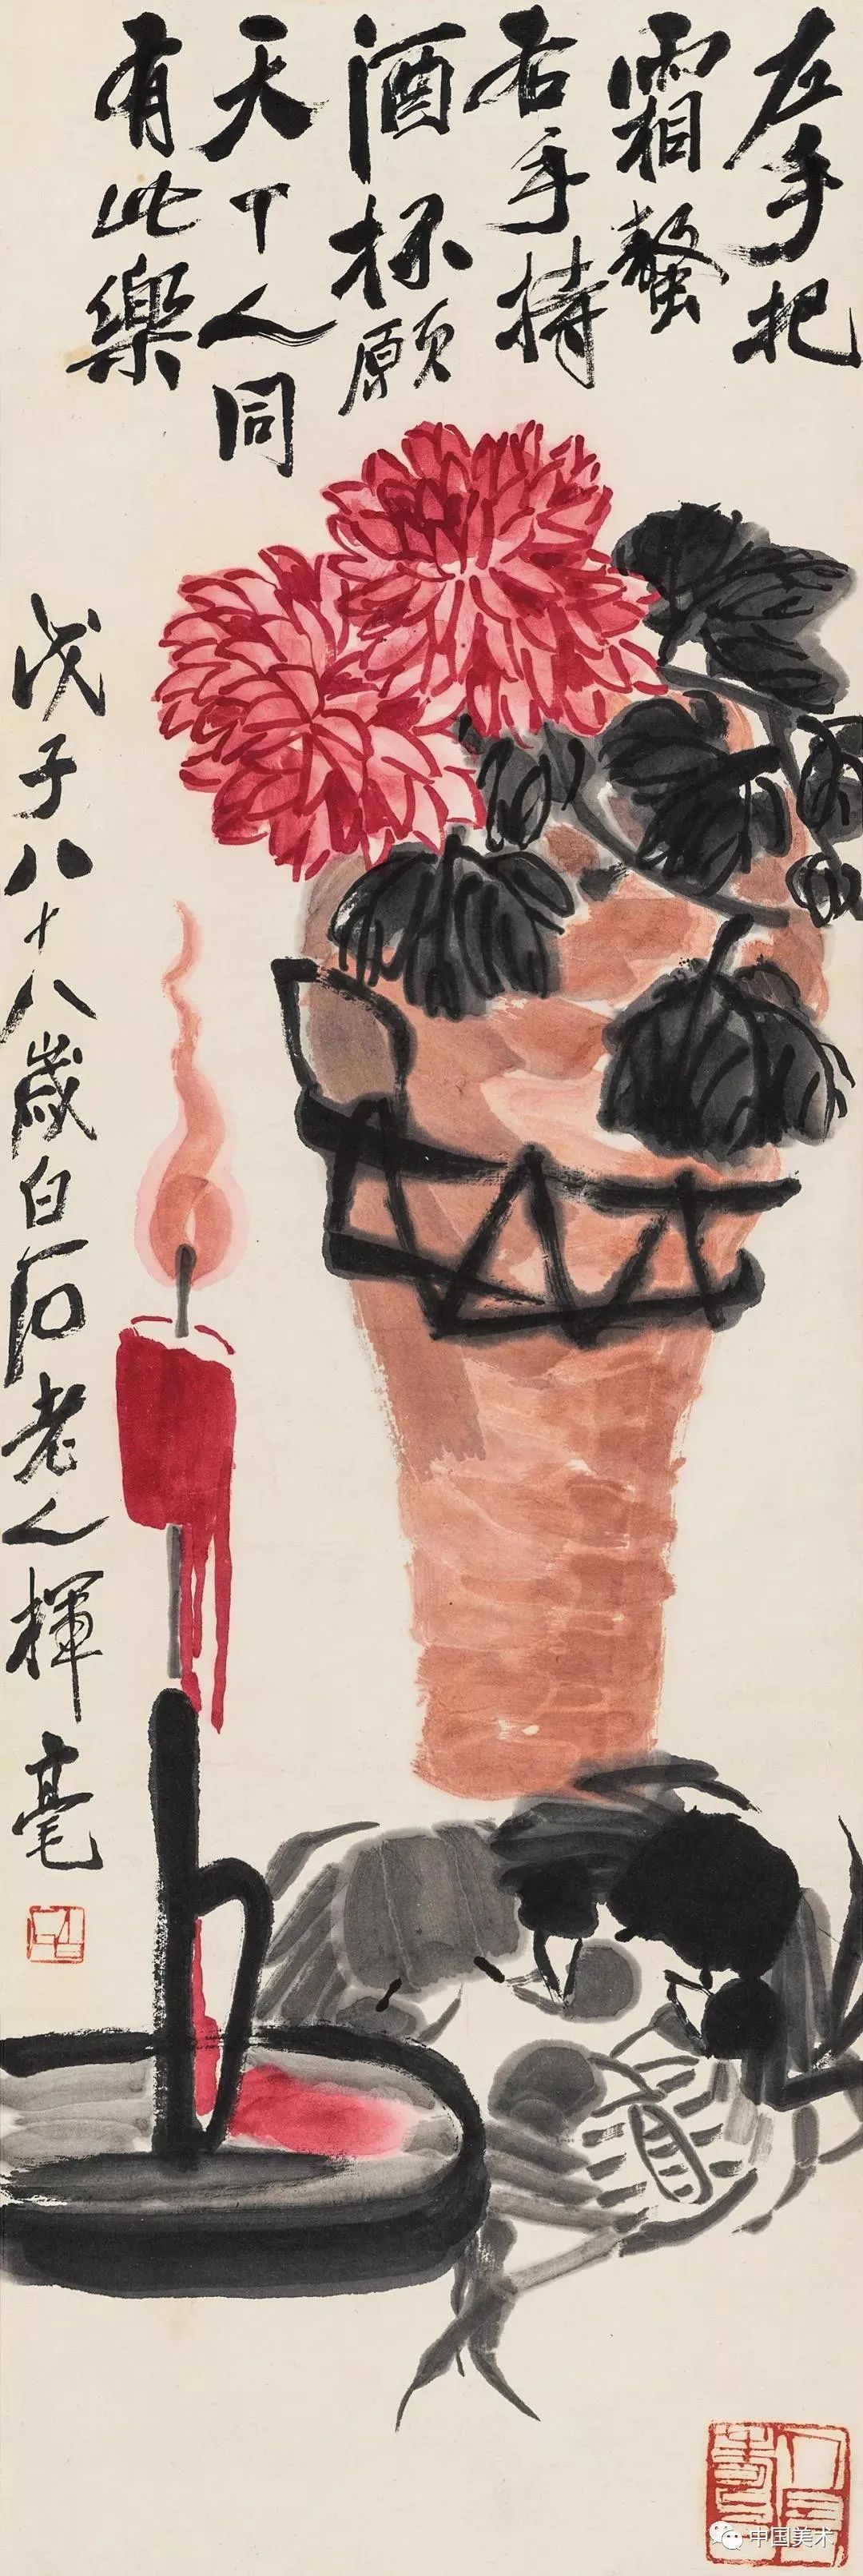 左手把
霜螯
右手持
酒杯願
天下人同
有此樂
戊子八十八歲白石老人揮毫
中国美术